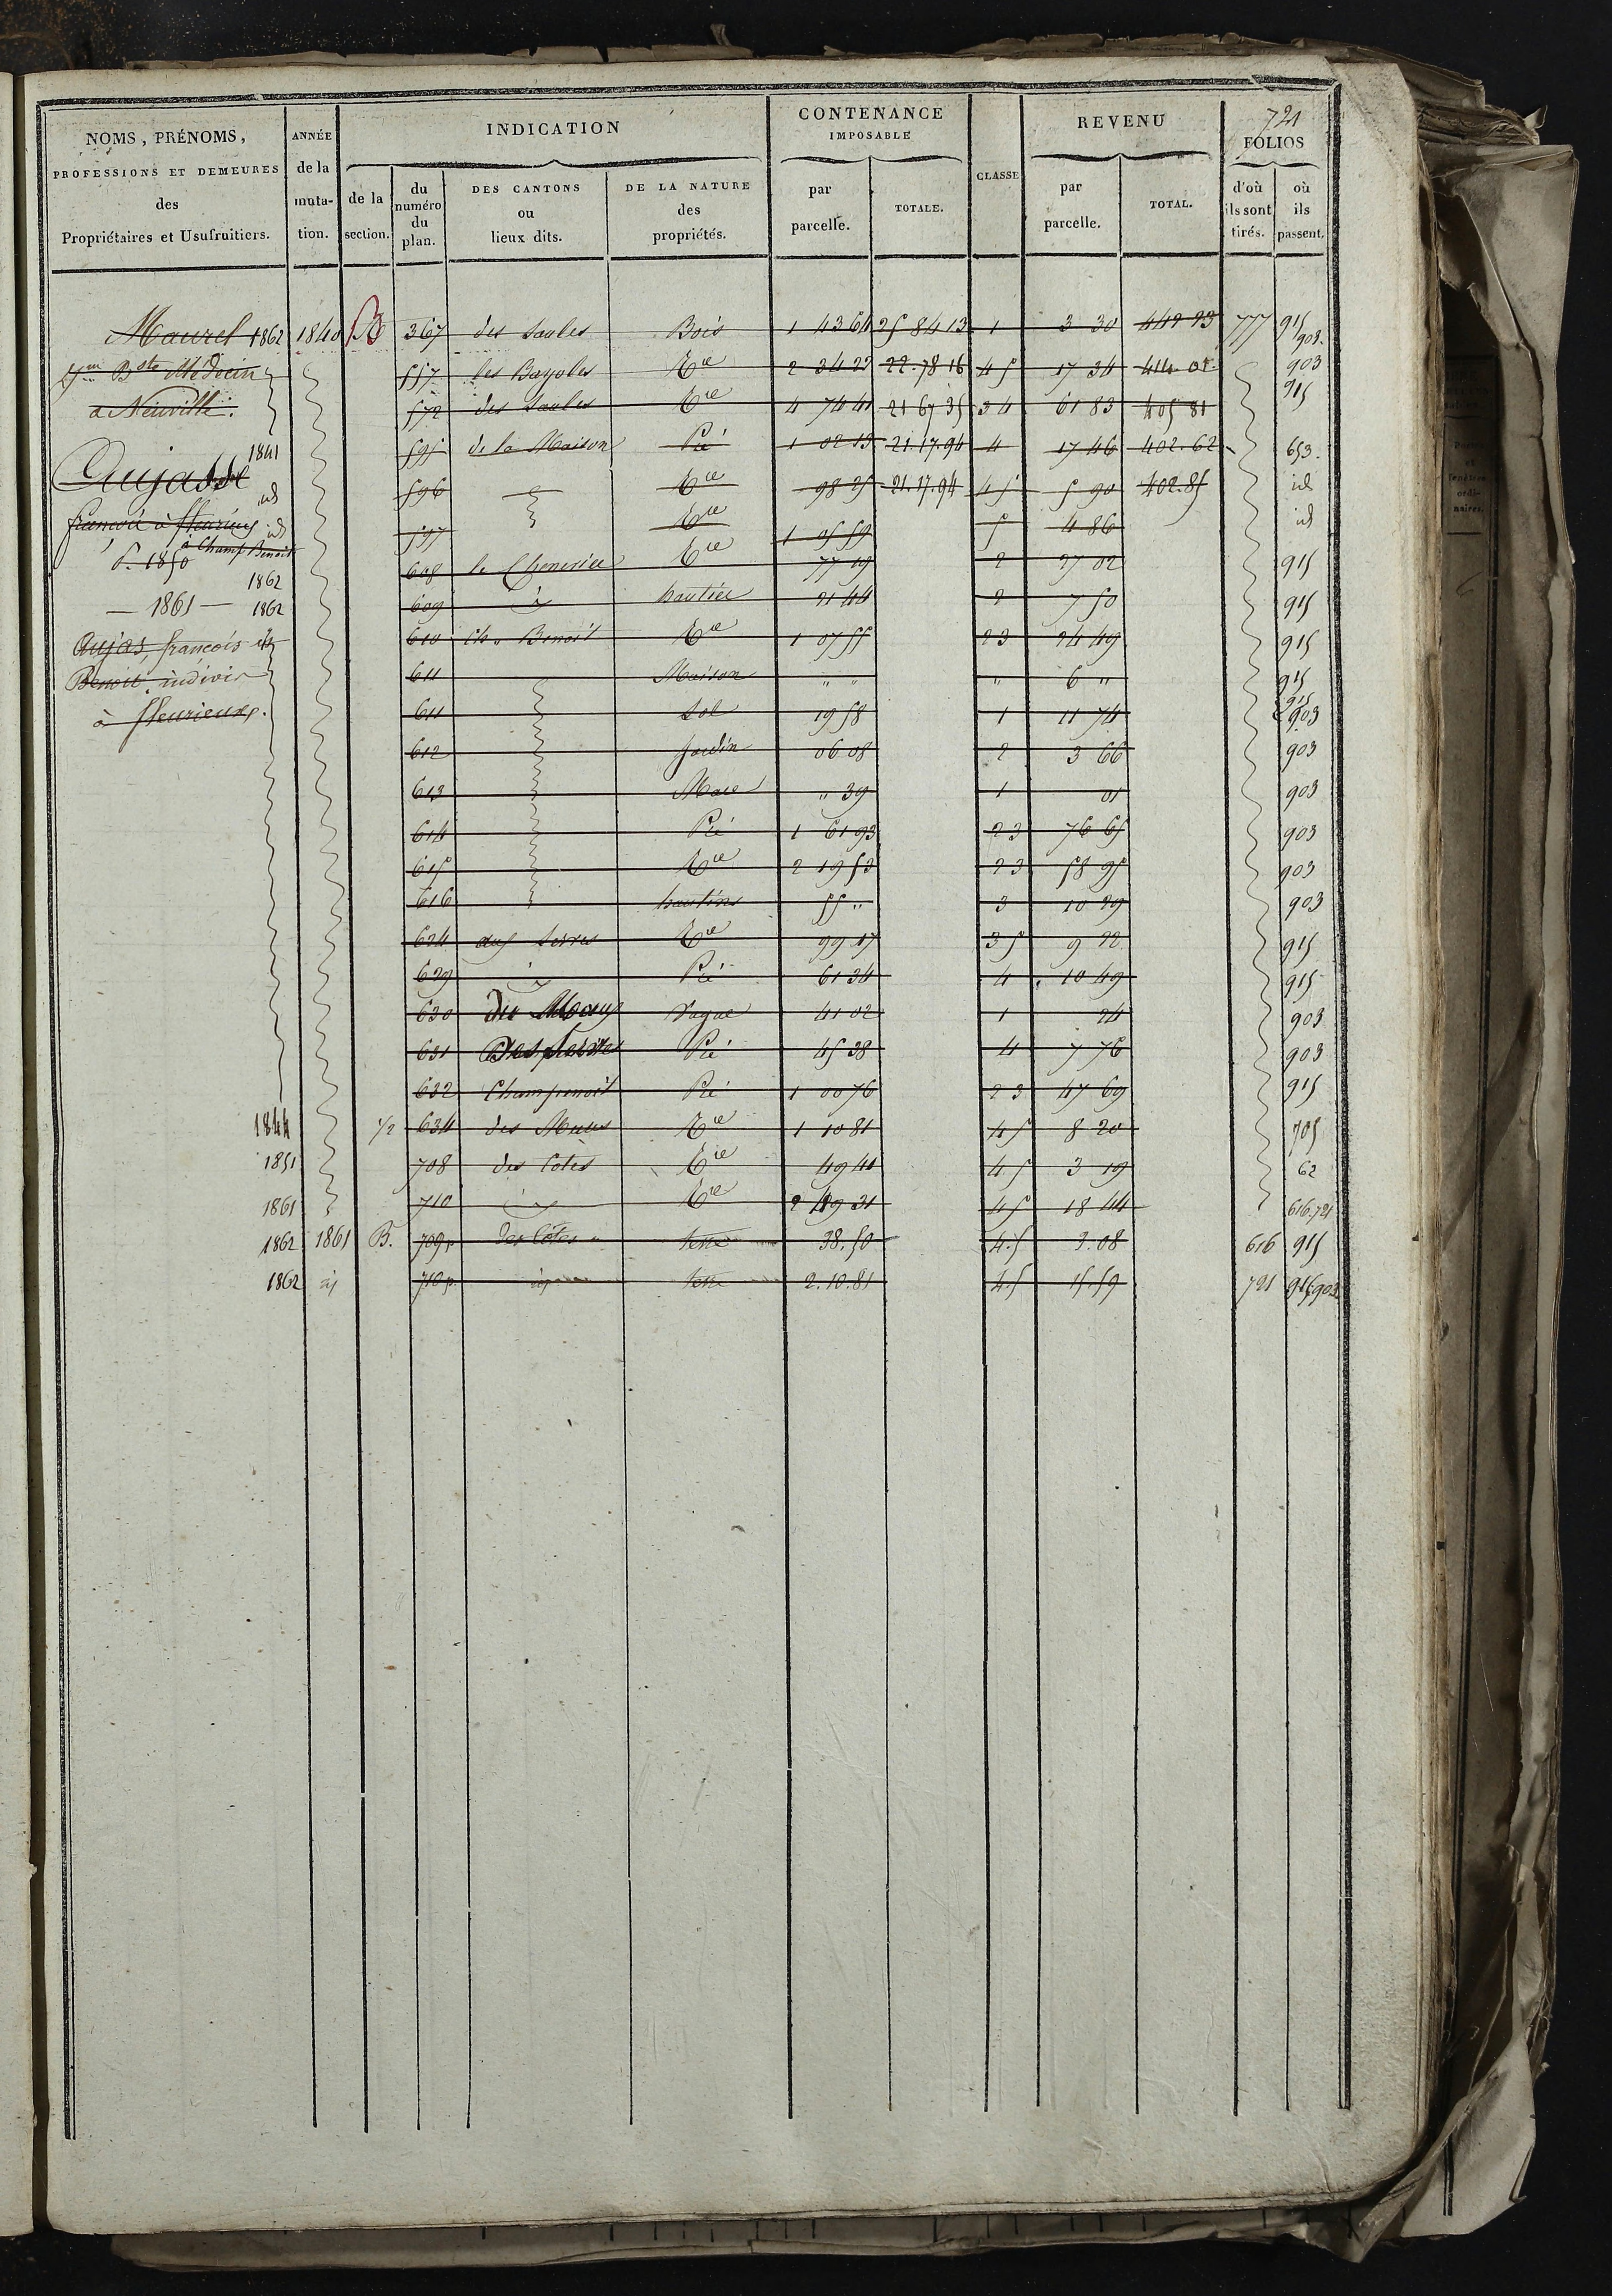 721
NOMS, PRÉNOMS, PROFESSIONS ET DEMEURES des Propriétaires et Usufruitiers.
ANNÉE de la muta- tion.
INDICATION
de la section.
du numéro du plan.
DES CANTONS ou lieux dits.
DE LA NATURE des propriétés.
CONTENANCE IMPOSABLE
par parcelle.
TOTALE.
CLASSE
REVENU
par parcelle.
TOTAL.
FOLIOS
d'où ils sont tirés.
où ils passent.
Maurel 1862 1840 B 367 des Saules Bois 1 43 64 25 84 13 1 3 30 442 23 777 915 903
Bste Médecin 557 les Bayoles Tre 2 34 22 22.78 16 4 5 17 34 414 01 903
a Neuville. 572 des Saules Tre 4 74 41 21 67 35 3 4 61 83 405 81 915
1841 595 de la Maison Pré 1 02 13 21.17.94 4 17 46 402.62 653.
Aujasse id 596 Tre 98 25 21.17.94 4 5 5 90 402.85 id
françois à fleurieux id 597 Tre 1 05 59 5 4 86 id
P. 1850 à Champ Benoit 1862 608 Tre 77 19 2 27 02 915
— 1861 — 1862 609 id hautiée 21 44 2 7 50 915
Aujas, françois et 610 Ch. Benoit Tre 1 07 55 2 3 24 49 915
Benoit, indivis 611 Maison " " " 6 " 915
à fleurieux. 611 Sol 19 58 1 11 74 915 903
612 Jardin 06 08 2 3 66 903
613 Mare " 39 1 01 903
614 Pré 1 61 93 2 3 76 65 903
615 Tre 2 19 53 2 3 58 95 903
616 hautins 55 " 3 10 29 903
624 aux Serres Tre 99 17 3 5 9 22 915
629 id Pré 61 34 4 10 49 915
630 Vague 41 02 1 24 903
631 Pré 45 38 4 7 76 903
632 Champenoit Pré 1 00 76 2 3 47 69 915
1844 1/2 634 des Mures Tre 1 10 81 4 5 8 20 705
1851 708 des Cotes Tre 49 41 4 5 3 19 62
1861 710 id Tre 2 49 31 4 5 18 44 616.721
1862 1861 B. 709p. des Côtes terre 38.50 4.5 3.08 616 915
1862 id 710p. id terre 2.10.81 4.5 15.59 721 915,903